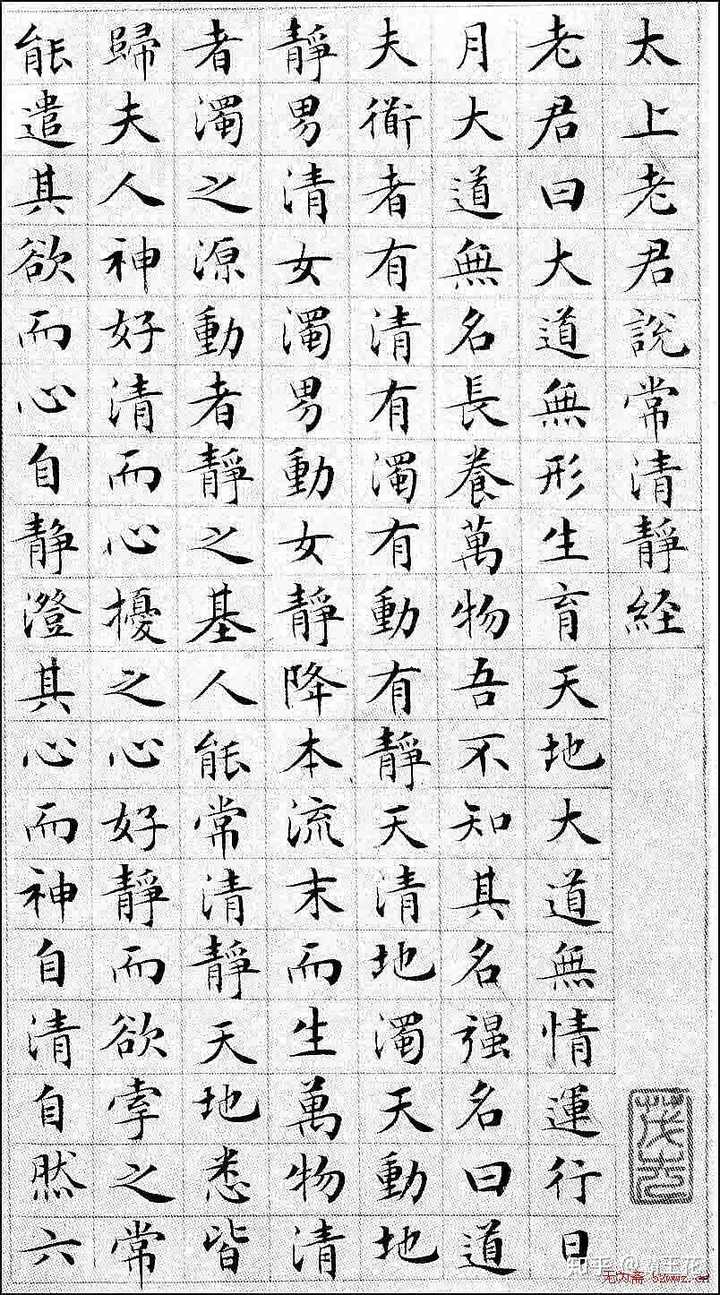 太上老君說常清靜経
老君曰大道無形生育天地大道無情運行日
月大道無名長養萬物吾不知其名强名曰道
夫衜者有清有濁有動有靜天清地濁天動地
靜男清女濁男動女靜降本流末而生萬物清
者濁之源動者靜之基人能常清靜天地悉皆
歸夫人神好清而心擾之心好靜而欲牽之常
能遣其欲而心自静澄其心而神自清自然六
知乎
无为斋 52wwz.cn